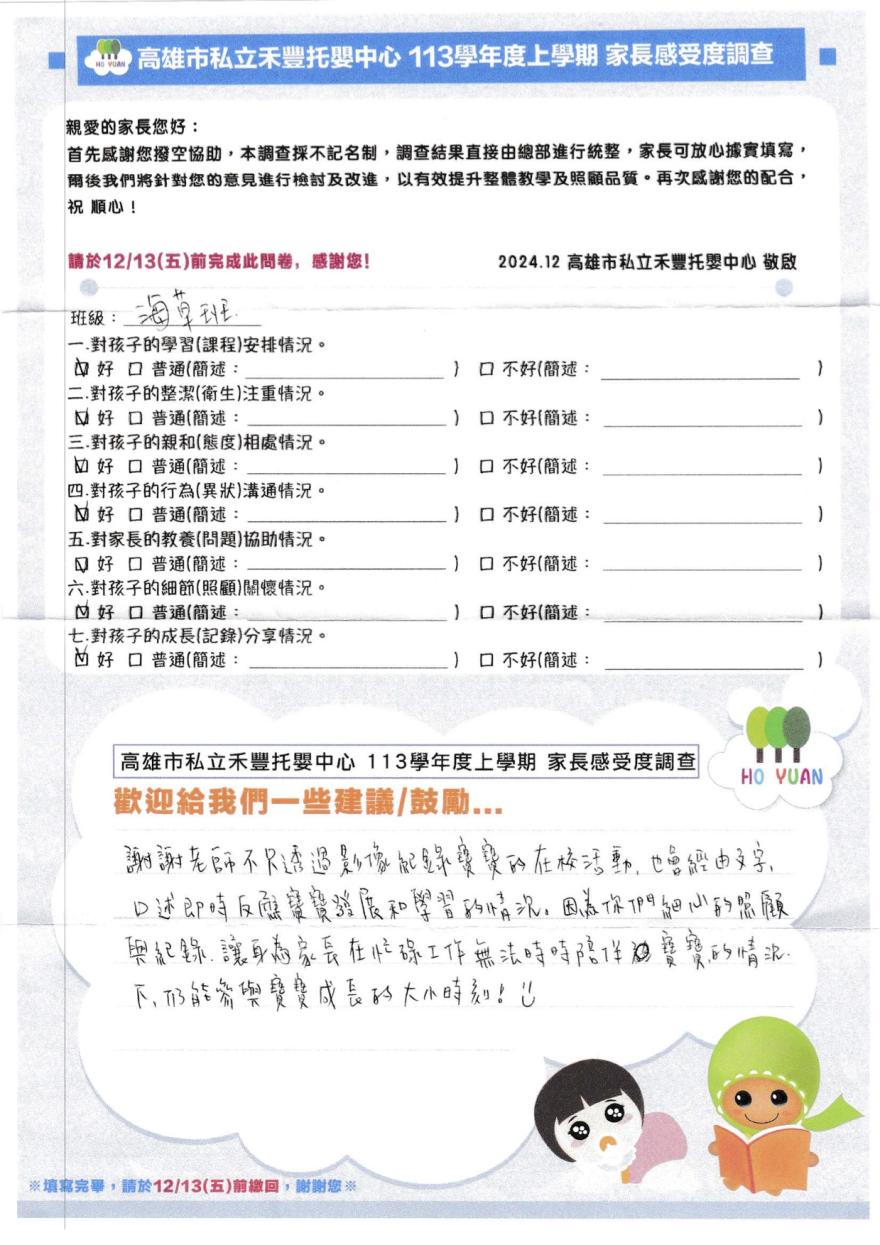 HO YUAN
高雄市私立禾豐托嬰中心 113學年度上學期 家長感受度調查
親愛的家長您好：
首先感謝您撥空協助，本調查採不記名制，調查結果直接由總部進行統整，家長可放心據實填寫，
爾後我們將針對您的意見進行檢討及改進，以有效提升整體教學及照顧品質。再次感謝您的配合，
祝 順心！
請於12/13(五)前完成此問卷，感謝您！
2024.12 高雄市私立禾豐托嬰中心 敬啟
班級：海草班
一.對孩子的學習(課程)安排情況。
☑ 好 □ 普通(簡述：＿＿＿＿) □ 不好(簡述：＿＿＿＿)
二.對孩子的整潔(衛生)注重情況。
☑ 好 □ 普通(簡述：＿＿＿＿) □ 不好(簡述：＿＿＿＿)
三.對孩子的親和(態度)相處情況。
☑ 好 □ 普通(簡述：＿＿＿＿) □ 不好(簡述：＿＿＿＿)
四.對孩子的行為(異狀)溝通情況。
☑ 好 □ 普通(簡述：＿＿＿＿) □ 不好(簡述：＿＿＿＿)
五.對家長的教養(問題)協助情況。
☑ 好 □ 普通(簡述：＿＿＿＿) □ 不好(簡述：＿＿＿＿)
六.對孩子的細節(照顧)關懷情況。
☑ 好 □ 普通(簡述：＿＿＿＿) □ 不好(簡述：＿＿＿＿)
七.對孩子的成長(記錄)分享情況。
☑ 好 □ 普通(簡述：＿＿＿＿) □ 不好(簡述：＿＿＿＿)
高雄市私立禾豐托嬰中心 113學年度上學期 家長感受度調查
HO YUAN
歡迎給我們一些建議/鼓勵...
謝謝老師不只透過影像紀錄寶寶的在校活動，也會經由文字、
口述即時反應寶寶發展和學習的情況。因為你們細心的照顧
與紀錄，讓身為家長在忙碌工作無法時時陪伴寶寶的情況
下，仍能參與寶寶成長的大小時刻！
※填寫完畢，請於12/13(五)前繳回，謝謝您※